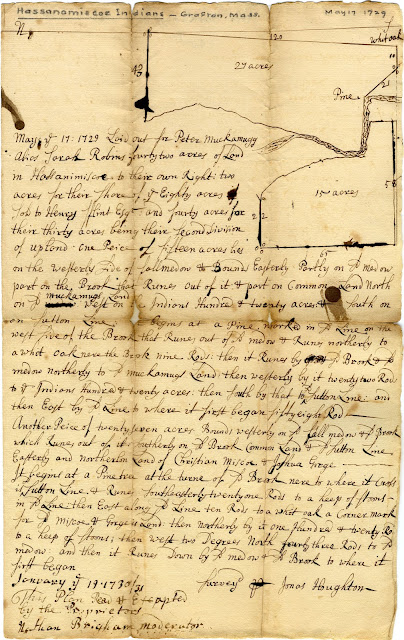 Hassanamiscoe Indians — Grafton, Mass. May 17 1729
N
120
whit oak
43
27 acres
21
Pine
58
15 acres
22
9
65
May ye 17: 1729 Laid out for Peter Muckamugg
Alies Sarah Robins fourty two acres of Land
in Hassanimisco to their own Right: two
acres for their Share of ye Eighty acres
Sold to Henry Flint Esqr and fourty acres for
their thirty acres being their Second Division
of upland: one Peice of fifteen acres lies
on the westerly side of Saltmedow & Bounds Easterly Partly on sd medow
part on the Brook that Runes out of it & part on Common Land North
on sd muckamugs Land west on Indians Hundred & twenty acres South on
on Sutton Line begins at a Pine marked in sd Line on the
west side of the Brook that Runes out of sd medow & Runes northerly to
a whit oak nere the Brook nine Rods: then it Runes by sd Brook & sd
medow northerly to sd muckamugs Land: then westerly by it twenty two Rod
to ye Indians Hundred & twenty acres: then South by that to Sutton Line: and
then East by sd Line to where it first began fifty eight Rod
Another Peice of twenty seven acres Bounds westerly on sd Salt medow & sd Brook
which Runes out of it Southerly on sd Brook Common Land & Sutton Line
Easterly and northerly on Land of Christian Misco & Joshua Gorge
It begins at a Pinetree at the turne of sd Brook nere to where it Cross
Sutton Line & Runes Southeasterly twenty one Rods to a heep of stoons
in sd Line then East along sd Line ten Rods to a whit oak a Corner mark
for sd Misco & Gorges Land: then northerly by it one Hundred & twenty Rod
to a heep of stoons; then west two Degrees North fourty three Rods to sd
medow: and then it Runes Down by sd medow & sd Brook to where it
first began
January ye 19: 1730/31 survey pr Jonas Houghton
This Plan Read & Excepted
by the Proprietors
Nathan Brigham moderator